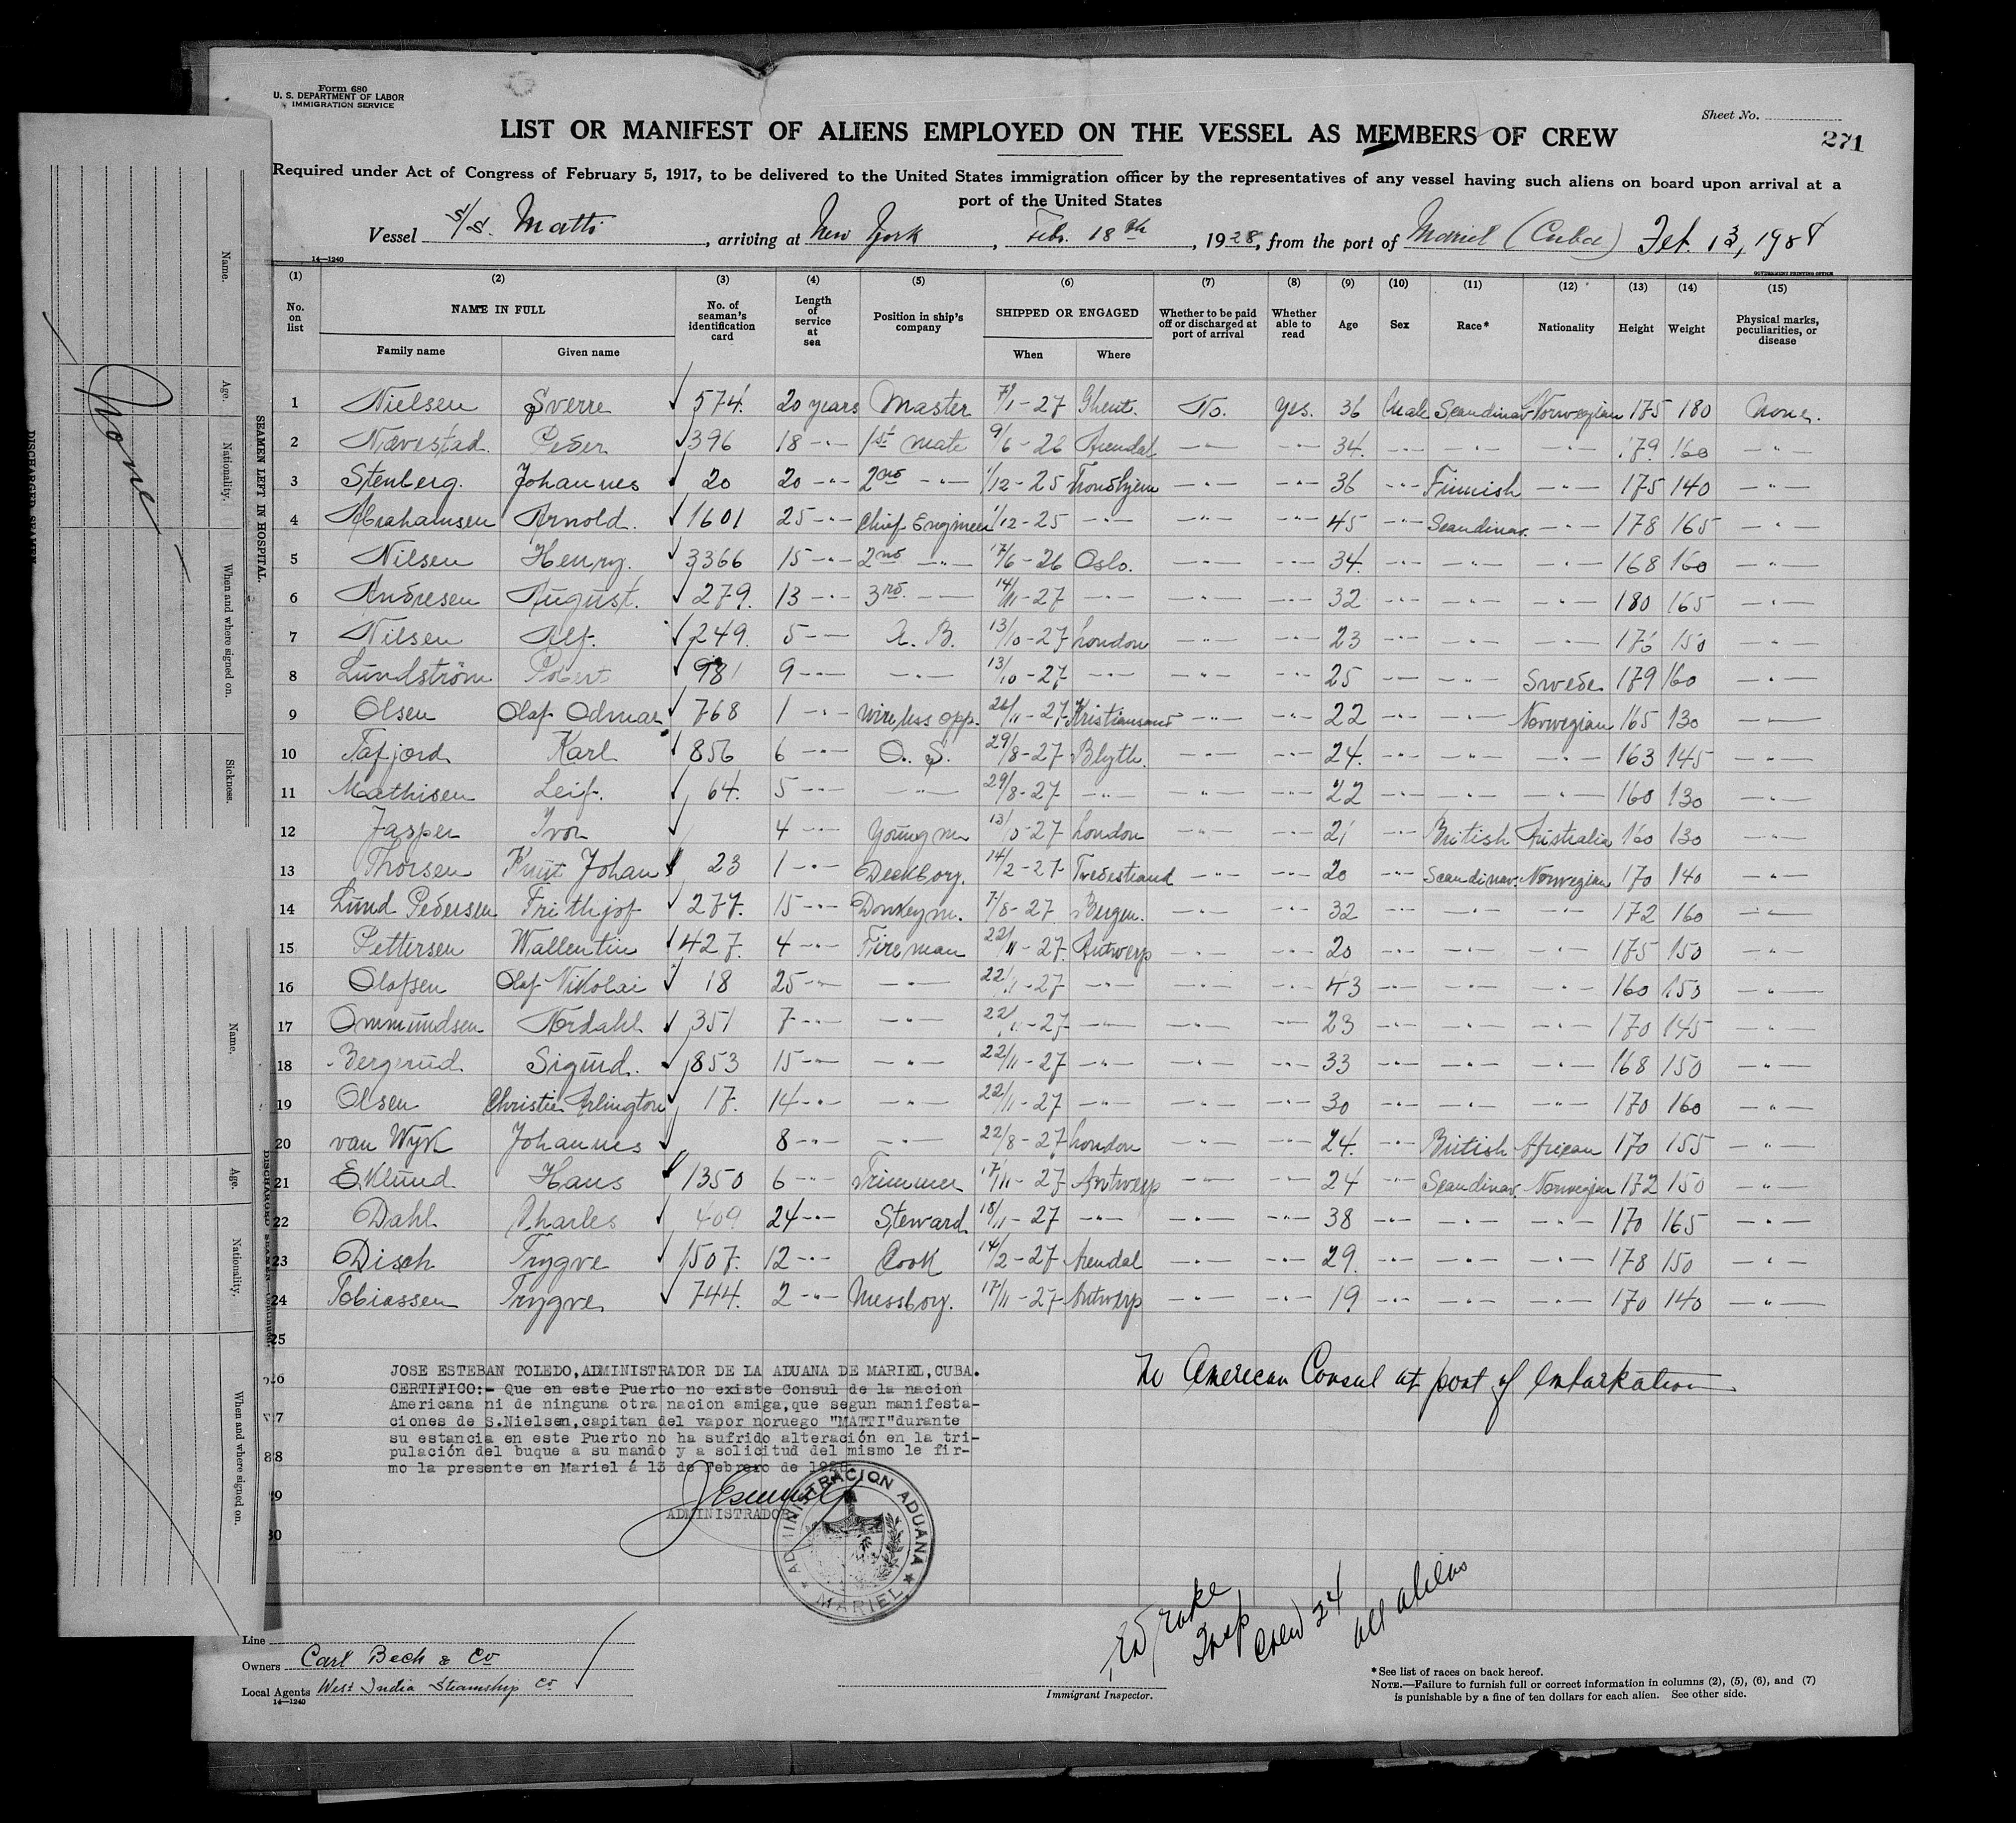 Form 680
U. S. DEPARTMENT OF LABOR
IMMIGRATION SERVICE
Sheet No.
271
LIST OR MANIFEST OF ALIENS EMPLOYED ON THE VESSEL AS MEMBERS OF CREW
Required under Act of Congress of February 5, 1917, to be delivered to the United States immigration officer by the representatives of any vessel having such aliens on board upon arrival at a
port of the United States
Vessel S/S. Matti, arriving at New York, Feb. 18th, 1928, from the port of Mariel (Cuba) Feb. 13, 1928
14—1240
GOVERNMENT PRINTING OFFICE
(1) (2) (3) (4) (5) (6) (7) (8) (9) (10) (11) (12) (13) (14) (15)
No. on list NAME IN FULL Family name Given name No. of seaman's identification card Length of service at sea Position in ship's company SHIPPED OR ENGAGED When Where Whether to be paid off or discharged at port of arrival Whether able to read Age Sex Race* Nationality Height Weight Physical marks, peculiarities, or disease
1 Nielsen Sverre ✓ 574. 20 years Master 7/1-27 Ghent. No. Yes. 36 Male Scandinav Norwegian 175 180 None.
2 Nævestad. Peder ✓ 396 18 -"- 1st mate 9/6-26 Arendal -"- -"- 34. -"- -"- -"- 179 160 -"-
3 Stenberg. Johannes ✓ 20 20 -"- 2nd -"- 1/12-25 Trondhjem -"- -"- 36 -"- Finnish -"- 175 140 -"-
4 Abrahamsen Arnold. ✓ 1601 25 -"- Chief Engineer 1/12-25 -"- -"- -"- 45 -"- Scandinav. -"- 178 165 -"-
5 Nilsen Henry. ✓ 3366 15 -"- 2nd -"- 17/6-26 Oslo. -"- -"- 34. -"- -"- -"- 168 160 -"-
6 Andresen August. ✓ 279. 13 -"- 3rd. -"- 14/11-27 -"- -"- -"- 32 -"- -"- -"- 180 165 -"-
7 Nilsen Alf. ✓ 249. 5 -"- A. B. 13/10-27 London -"- -"- 23 -"- -"- -"- 176 150 -"-
8 Lundström Robert ✓ 981 9 -"- -"- 13/10-27 -"- -"- -"- 25 -"- -"- Swede 179 160 -"-
9 Olsen Olaf Odmar ✓ 768 1 -"- Wireless opp. 26/11-27 Kristiansand -"- -"- 22 -"- -"- Norwegian 165 130 -"-
10 Tafjord Karl ✓ 856 6 -"- O. S. 29/8-27 Blyth. -"- -"- 24. -"- -"- -"- 163 145 -"-
11 Mathisen Leif. ✓ 64. 5 -"- -"- 29/8-27 -"- -"- -"- 22 -"- -"- -"- 160 130 -"-
12 Jasper Ivor ✓ 4 -"- Young m. 13/10-27 London -"- -"- 21 -"- British Australia 160 130 -"-
13 Thorsen Knut Johan ✓ 23 1 -"- Deckboy. 14/2-27 Tvedestrand -"- -"- 20 -"- Scandinav. Norwegian 170 140 -"-
14 Lund Pedersen Frithjof ✓ 277. 15 -"- Donkeym. 7/8-27 Bergen. -"- -"- 32 -"- -"- -"- 172 160 -"-
15 Pettersen Wallentin ✓ 427. 4 -"- Fireman 22/11-27 Antwerp -"- -"- 20 -"- -"- -"- 175 150 -"-
16 Olafsen Olaf Nikolai ✓ 18 25 -"- -"- 22/11-27 -"- -"- -"- 43 -"- -"- -"- 160 150 -"-
17 Ommundsen Nordahl ✓ 351 7 -"- -"- 22/11-27 -"- -"- -"- 23 -"- -"- -"- 170 145 -"-
18 Bergerud. Sigurd. ✓ 853 15 -"- -"- 22/11-27 -"- -"- -"- 33 -"- -"- -"- 168 150 -"-
19 Olsen Christie Arlington ✓ 17. 14 -"- -"- 22/11-27 -"- -"- -"- 30 -"- -"- -"- 170 160 -"-
20 van Wyk Johannes ✓ 8 -"- -"- 22/8-27 London -"- -"- 24. -"- British African 170 155 -"-
21 Eklund Hans ✓ 1350 6 -"- Trimmer 17/11-27 Antwerp -"- -"- 24 -"- Scandinav. Norwegian 172 150 -"-
22 Dahl Charles ✓ 409 24 -"- Steward 18/11-27 -"- -"- -"- 38 -"- -"- -"- 170 165 -"-
23 Disch Trygve ✓ 1507. 12 -"- Cook 14/2-27 Arendal -"- -"- 29. -"- -"- -"- 178 150 -"-
24 Tobiassen Trygve ✓ 744. 2 -"- Messboy. 17/11-27 Antwerp -"- -"- 19 -"- -"- -"- 170 140 -"-
25
JOSE ESTEBAN TOLEDO,ADMINISTRADOR DE LA ADUANA DE MARIEL,CUBA.
CERTIFICO:- Que en este Puerto no existe Consul de la nacion
Americana ni de ninguna otra nacion amiga,que segun manifesta-
ciones de S.Nielsen,capitan del vapor noruego "MATTI"durante
su estancia en este Puerto no ha sufrido alteración en la tri-
pulación del buque a su mando y a solicitud del mismo le fir-
mo la presente en Mariel á 13 de Febrero de 1928
ADMINISTRADOR
ADMINISTRACION ADUANA
MARIEL
No American Consul at port of Embarkation
Insp
Crew 24
all aliens
Line
Owners Carl Bech & Co
Local Agents West India Steamship Co
14—1240
Immigrant Inspector.
*See list of races on back hereof.
NOTE.—Failure to furnish full or correct information in columns (2), (5), (6), and (7)
is punishable by a fine of ten dollars for each alien. See other side.
DISCHARGED SEAMEN
SEAMEN LEFT IN HOSPITAL.
Name. Age. Nationality. When and where signed on. Sickness.
None
DISCHARGED SEAMEN—Continued.
Name. Age. Nationality. When and where signed on.